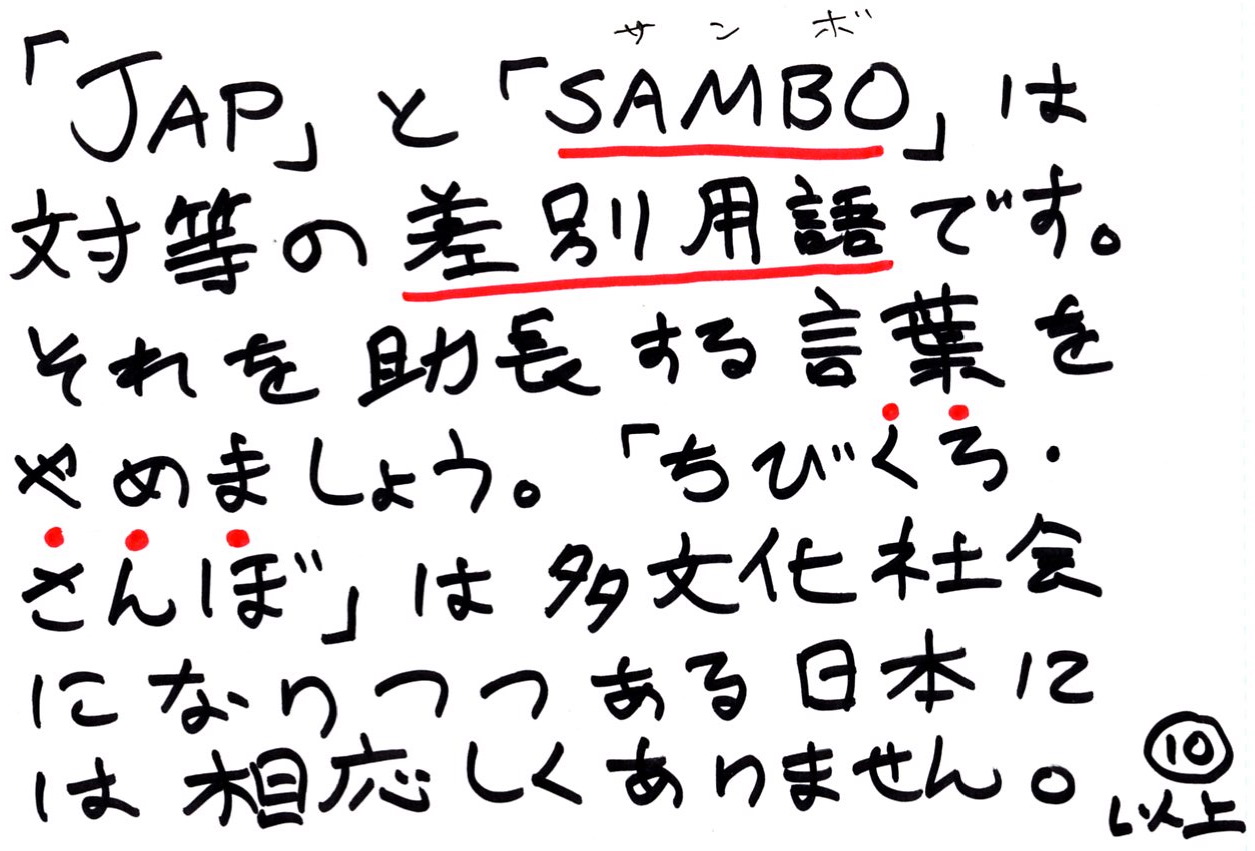 サンボ
「JAP」と「SAMBO」は
対等の差別用語です。
それを助長する言葉を
やめましょう。「ちびくろ・
さんぼ」は多文化社会
になりつつある日本に
は相応しくありません。
⑩
以上